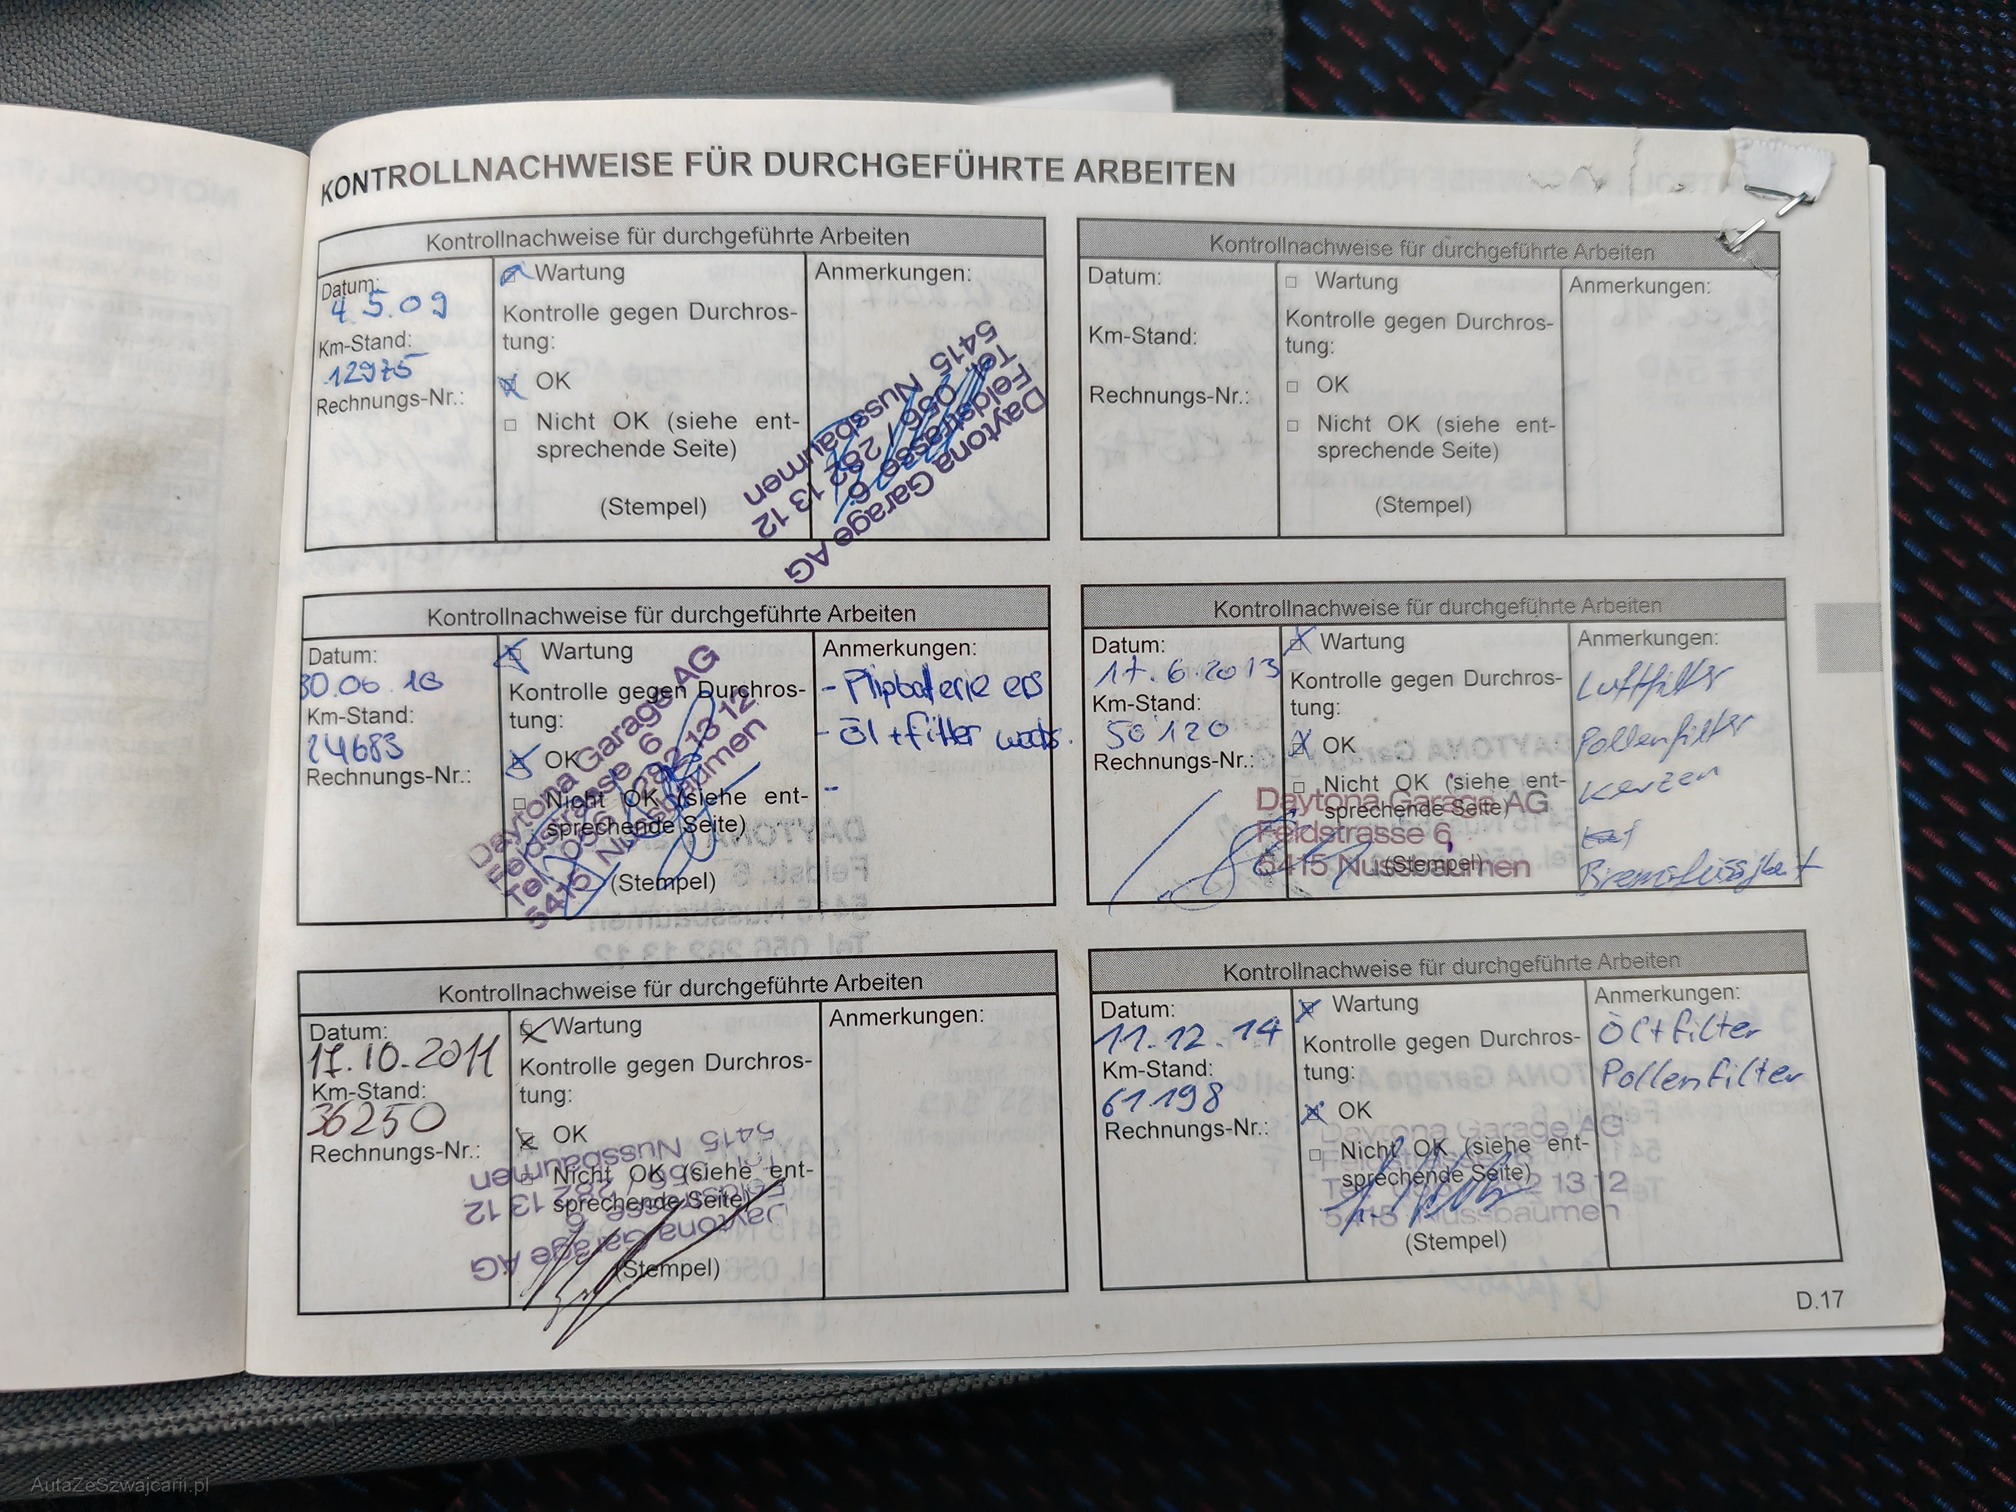 KONTROLLNACHWEISE FÜR DURCHGEFÜHRTE ARBEITEN
Kontrollnachweise für durchgeführte Arbeiten
Datum:
4.5.09
Km-Stand:
12975
Rechnungs-Nr.:
Wartung
Kontrolle gegen Durchros-
tung:
OK
Nicht OK (siehe ent-
sprechende Seite)
(Stempel)
Anmerkungen:
Daytona Garage AG
Feldstrasse 6
Tel. 056 / 282 13 12
5415 Nussbaumen
Kontrollnachweise für durchgeführte Arbeiten
Datum:
30.06.10
Km-Stand:
24683
Rechnungs-Nr.:
Wartung
Kontrolle gegen Durchros-
tung:
OK
Nicht OK (siehe ent-
sprechende Seite)
(Stempel)
Daytona Garage AG
Feldstrasse 6
Tel. 056 / 282 13 12
5415 Nussbaumen
Anmerkungen:
- Plipbatterie ers
- Öl + filter
-
Kontrollnachweise für durchgeführte Arbeiten
Datum:
17.10.2011
Km-Stand:
36250
Rechnungs-Nr.:
Wartung
Kontrolle gegen Durchros-
tung:
OK
Nicht OK (siehe ent-
sprechende Seite)
(Stempel)
Daytona Garage AG
Feldstrasse 6
Tel. 056 / 282 13 12
5415 Nussbaumen
Anmerkungen:
Kontrollnachweise für durchgeführte Arbeiten
Datum:
Km-Stand:
Rechnungs-Nr.:
Wartung
Kontrolle gegen Durchros-
tung:
OK
Nicht OK (siehe ent-
sprechende Seite)
(Stempel)
Anmerkungen:
Kontrollnachweise für durchgeführte Arbeiten
Datum:
17.6.2013
Km-Stand:
50'120
Rechnungs-Nr.:
Wartung
Kontrolle gegen Durchros-
tung:
OK
Nicht OK (siehe ent-
sprechende Seite)
(Stempel)
Daytona Garage AG
Feldstrasse 6
5415 Nussbaumen
Anmerkungen:
Luftfilter
Pollenfilter
Kerzen
Bremsflüssigkeit
Kontrollnachweise für durchgeführte Arbeiten
Datum:
11.12.14
Km-Stand:
61'198
Rechnungs-Nr.:
Wartung
Kontrolle gegen Durchros-
tung:
OK
Nicht OK (siehe ent-
sprechende Seite)
(Stempel)
Daytona Garage AG
Feldstrasse 6
Tel. 056 / 282 13 12
5415 Nussbaumen
Anmerkungen:
Öl+filter
Pollenfilter
D.17
AutaZeSzwajcarii.pl